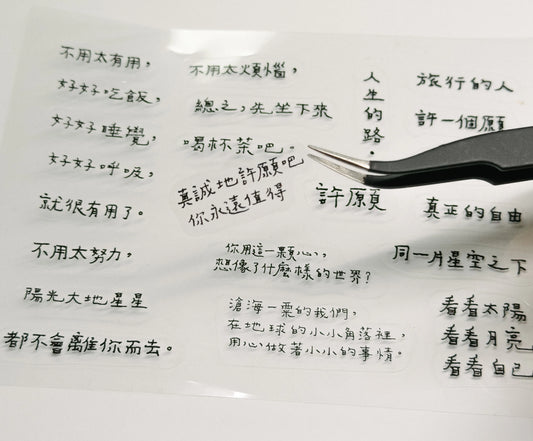 不用太有用，
好好吃飯，
好好睡覺，
好好呼吸，
就很有用了。
不用太努力，
陽光大地星星
都不會離你而去。
不用太煩惱，
總之，先坐下來
喝杯茶吧。
真誠地許願吧
你永遠值得
你用這一顆心，
想像了什麼樣的世界？
滄海一粟的我們，
在地球的小小角落裡，
用心做著小小的事情。
人生的路，
許願
旅行的人
許一個願
真正的自由
同一片星空之下
看看太陽
看看月亮
看看自己